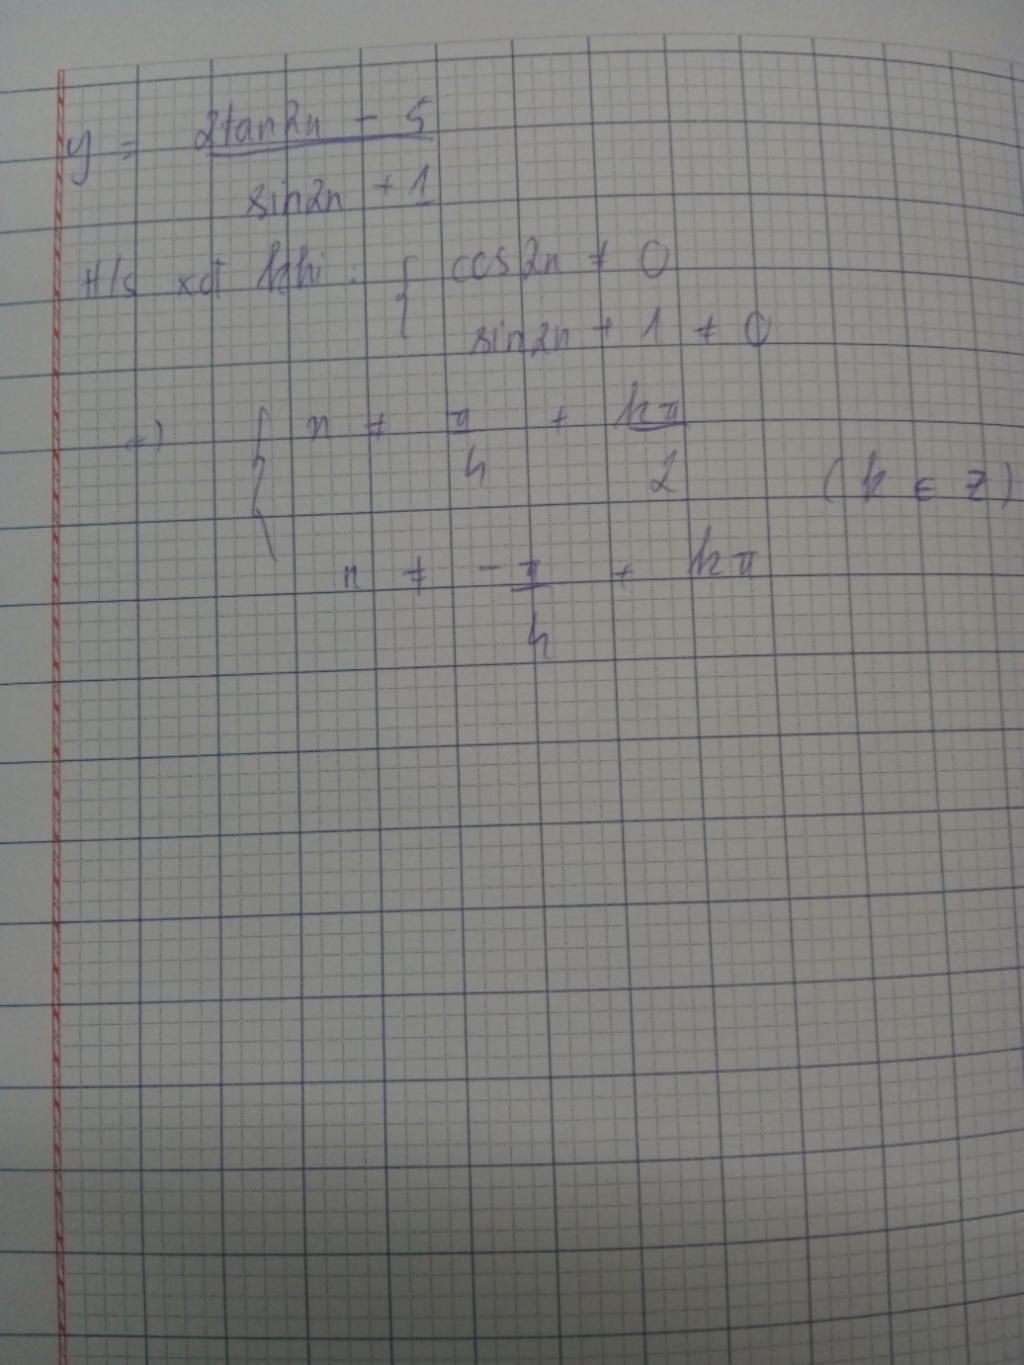 y = 2tan2x - 5
sin2x + 1
H/s xđ khi : { cos2x ≠ 0
sin2x + 1 ≠ 0
=) { x ≠ π/4 + kπ/2
(k ∈ Z)
x ≠ -π/4 + kπ